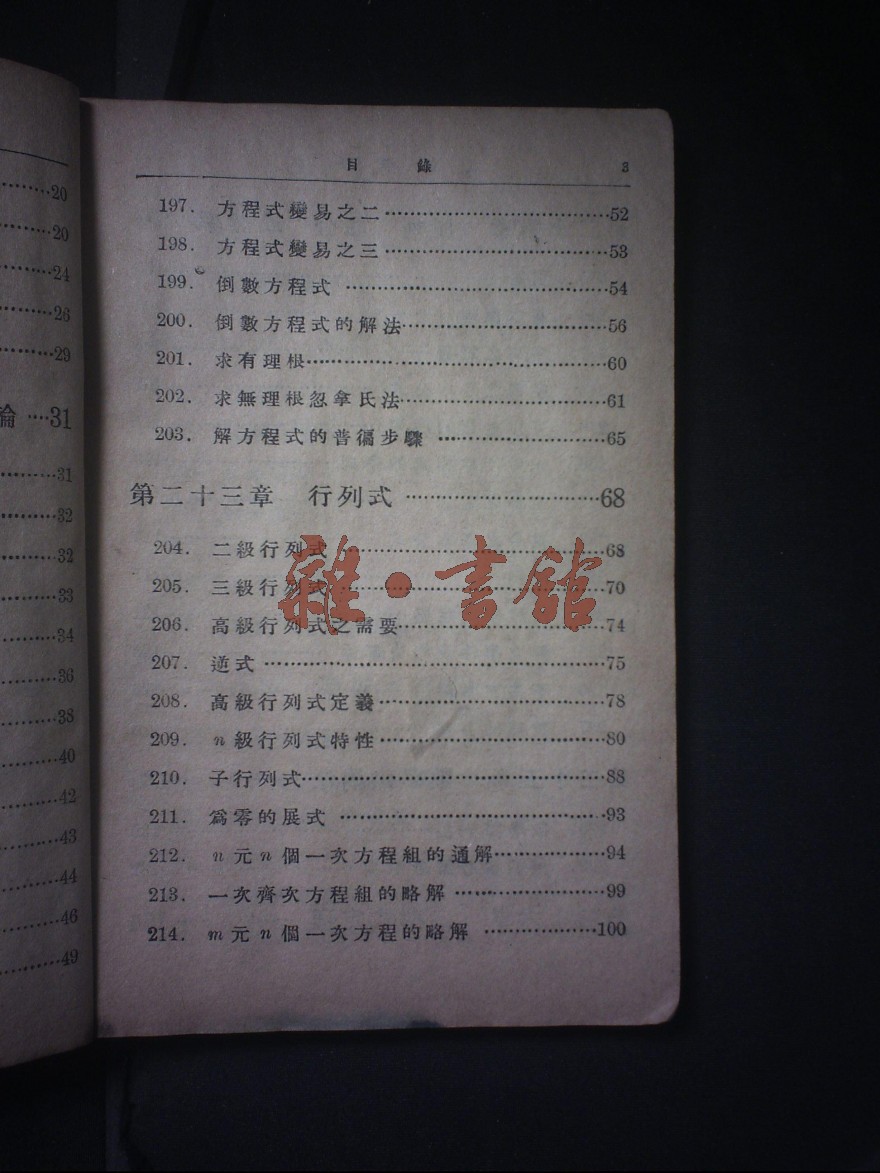 20
20
24
26
29
論····31
31
32
32
33
34
36
38
40
42
43
44
46
49
目 錄 3
197. 方程式變易之二··························52
198. 方程式變易之三··························53
199. 倒數方程式 ······························54
200. 倒數方程式的解法························56
201. 求有理根··································60
202. 求無理根忽拿氏法························61
203. 解方程式的普徧步驟 ····················65
第二十三章 行列式 ························68
204. 二級行列式 ······························68
205. 三級行列式 ······························70
206. 高級行列式之需要························74
207. 逆式······································75
208. 高級行列式定義··························78
209. n級行列式特性··························80
210. 子行列式··································88
211. 爲零的展式 ······························93
212. n元n個一次方程組的通解················94
213. 一次齊次方程組的略解 ··················99
214. m元n個一次方程的略解 ·················100
雜·書館